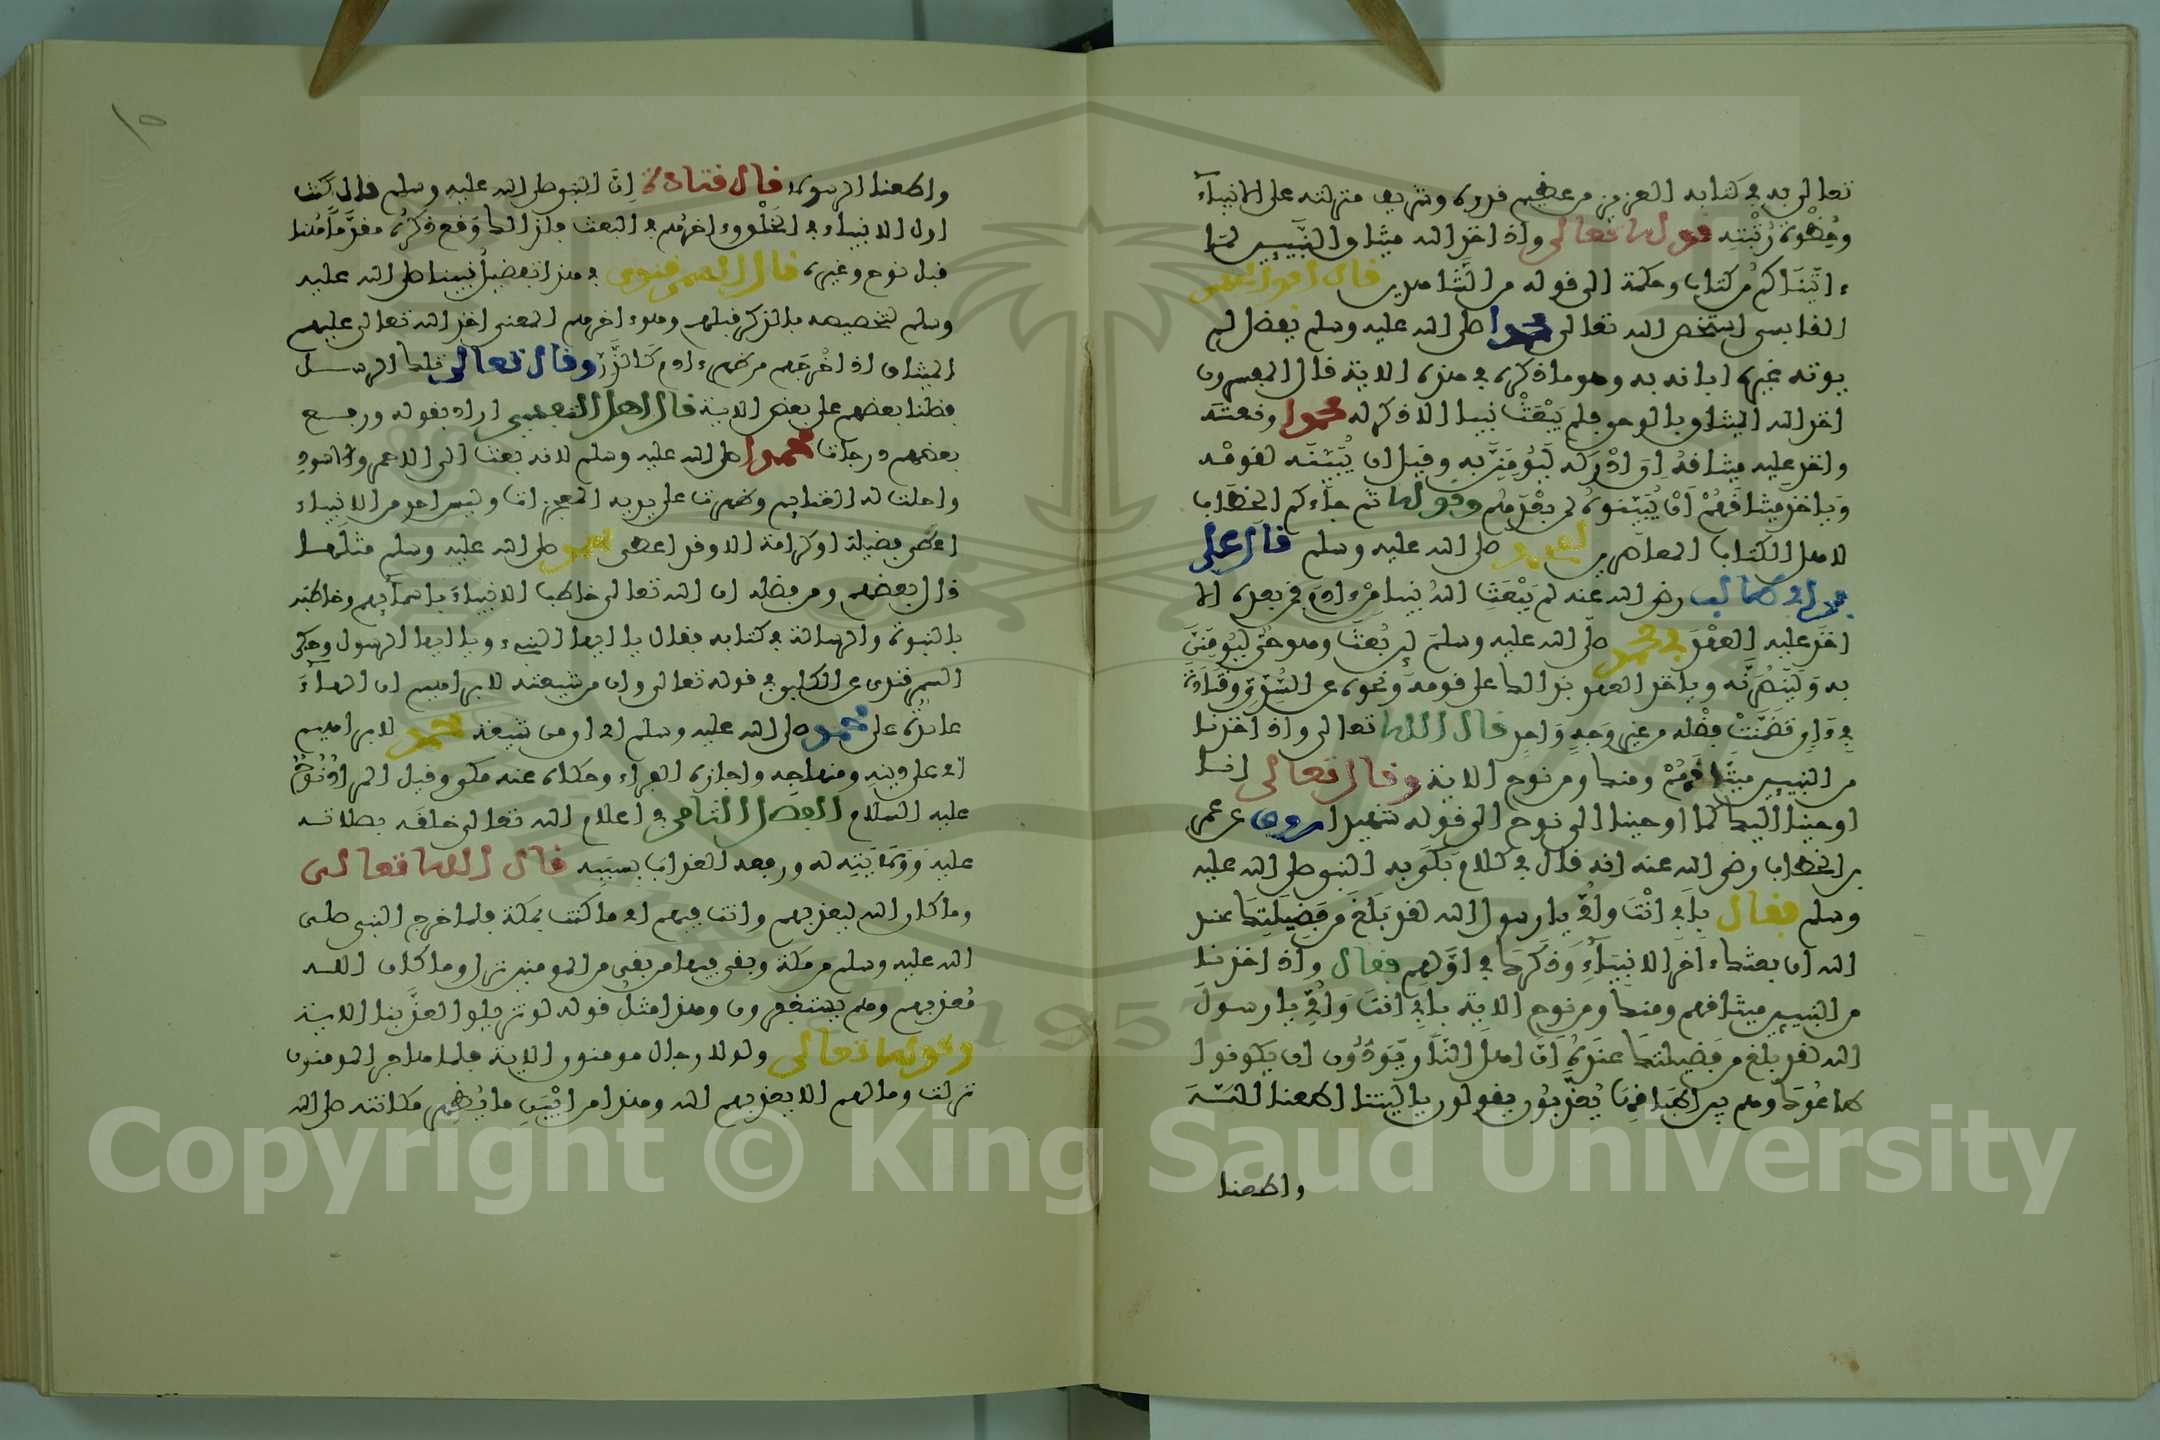 تعالى به في كتابه العزيز من عظيم قدره وشريف منزلته على الانبياء
وحظوة رتبته قوله تعالى واذ اخذ الله ميثاق النبيين لما
ءاتيناكم من كتاب وحكمة الى قوله من الشاهدين قال ابو الحسن
القابسي استخص الله تعالى محمدا صلى الله عليه وسلم بفضل لم
يوته غيره ابانه به وهو ما ذكره في هذه الاية قال المفسرون
اخذ الله الميثاق بالوحي فلم يبعث نبيا الا ذكر له محمدا ونعته
واخذ عليه ميثاقه ان ادركه ليومنن به وقيل ان يبينه لقومه
وياخذ ميثاقهم ان يبينوه لمن بعدهم وقوله ثم جاءكم الخطاب
لاهل الكتاب المعاصرين لمحمد صلى الله عليه وسلم قال علي
بن ابي طالب رضي الله عنه لم يبعث الله نبيا من ءادم فمن بعده الا
اخذ عليه العهد في محمد صلى الله عليه وسلم لين بعث وهو حي ليومنن
به ولينصرنه وياخذ العهد بذالك على قومه ونحوه عن السدي وقتادة
في ءاي تضمنت فضله من غير وجه واحد قال الله تعالى واذ اخذنا
من النبيين ميثاقهم ومنك ومن نوح الاية وقال تعالى انا
اوحينا اليك كما اوحينا الى نوح الى قوله شهيدا روي عن عمر
بن الخطاب رضي الله عنه انه قال في كلام بكى به النبي صلى الله عليه
وسلم فقال بابي انت وامي يا رسول الله لقد بلغ من فضيلتك عند
الله ان بعثك ءاخر الانبياء وذكرك في اولهم فقال واذ اخذنا
من النبيين ميثاقهم ومنك ومن نوح الاية بابي انت وامي يا رسول
الله لقد بلغ من فضيلتك عنده ان اهل النار يودون ان يكونوا
اطاعوك وهم بين اطباقها يعذبون يقولون يا ليتنا اطعنا الله
واطعنا
١٥
واطعنا الرسول قال قتادة ان النبي صلى الله عليه وسلم قال كنت
اول الانبياء في الخلق وءاخرهم في البعث فلذالك وقع ذكره مقدما هنا
قبل نوح وغيره قال السمرقندي في هذا تفضيل نبينا صلى الله عليه
وسلم لتخصيصه بالذكر قبلهم وهو ءاخرهم المعنى اخذ الله تعالى عليهم
الميثاق اذ اخرجهم من ظهر ءادم كالذر وقال تعالى تلك الرسل
فضلنا بعضهم على بعض الاية قال اهل التفسير اراد بقوله ورفع
بعضهم درجات محمدا صلى الله عليه وسلم لانه بعث الى الاحمر والاسود
واحلت له الغنايم وظهرت على يديه المعجزات وليس احد من الانبياء
اعطي فضيلة او كرامة الا وقد اعطي محمد صلى الله عليه وسلم مثلها
قال بعضهم ومن فضله ان الله تعالى خاطب الانبياء باسمايهم وخاطبه
بالنبوة والرسالة في كتابه فقال يا ايها النبيء ويا ايها الرسول وحكى
السمرقندي عن الكلبي في قوله تعالى وان من شيعته لابراهيم ان الهاء
عايدة على محمد صلى الله عليه وسلم اي ان من شيعة محمد لابراهيم
اي على دينه ومنهاجه واجازه الفراء وحكاه عنه مكي وقيل المراد نوح
عليه السلام الفصل الثامن في اعلام الله تعالى خلقه بصلاته
عليه وولايته له ورفعه العذاب بسببه قال الله تعالى
وما كان الله ليعذبهم وانت فيهم اي ما كنت بمكة فلما خرج النبي صلى
الله عليه وسلم من مكة وبقي فيها من بقي من المومنين نزل وما كان الله
معذبهم وهم يستغفرون وهذا مثل قوله لو تزيلوا لعذبنا الاية
وقوله تعالى ولولا رجال مومنون الاية فلما هاجر المومنون
نزلت وما لهم الا يعذبهم الله وهذا من ابين ما يظهر مكانته صلى الله
Copyright © King Saud University
1957